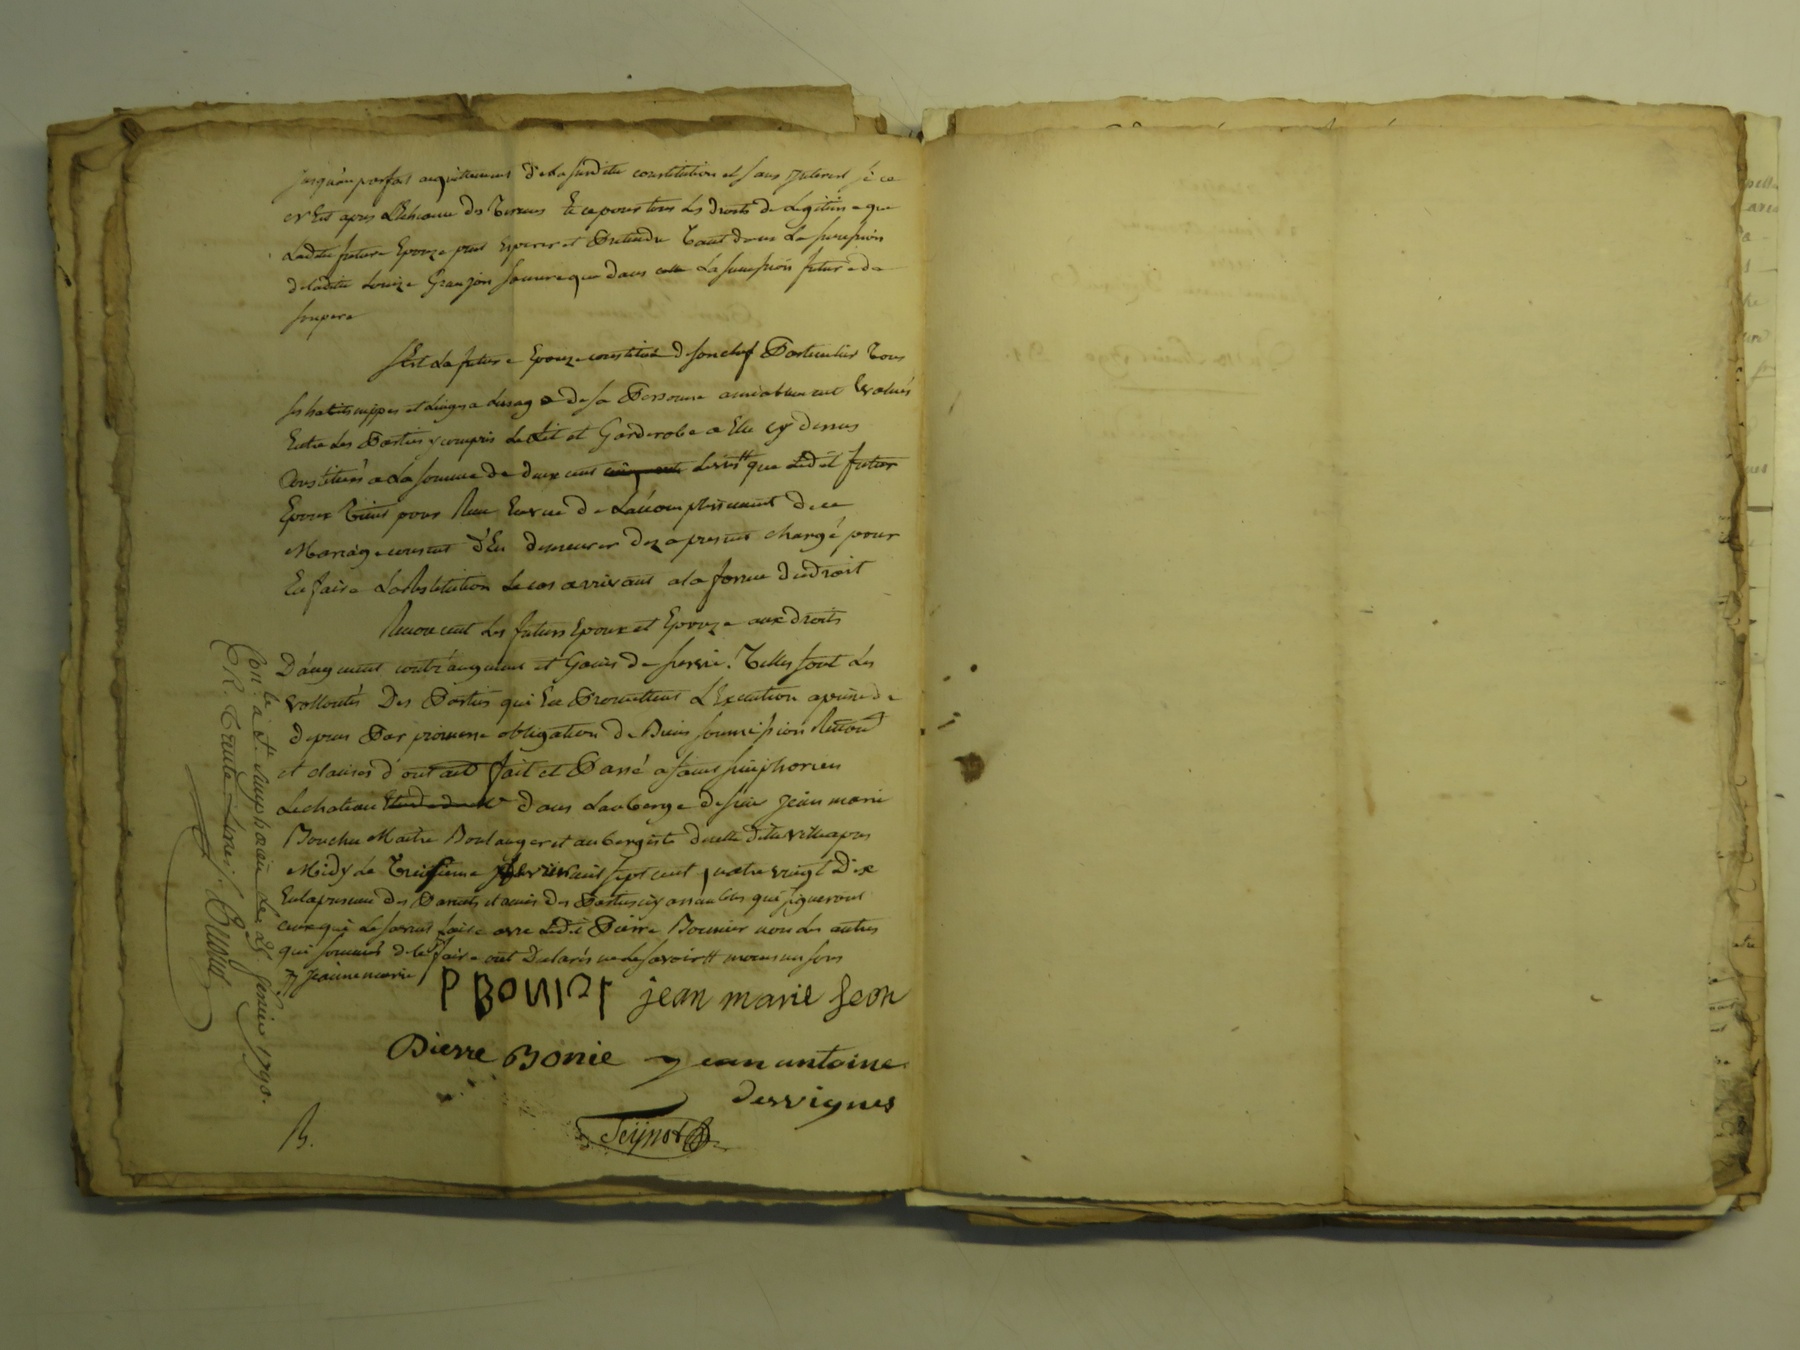 jusqu'au parfait acquittement de la susditte constitution et sans interest si ce
n'est apres l'echeance des termes Et ce pour tous les droits de legitime que
laditte future Epouze peut Esperer et Pretendre tant dans la succession
de laditte Louize Granjon sa mere que dans celle la succession future de
son pere
S'est la future Epouze constitué de son chef Particulier tous
ses habits nippes et linges a lusage de sa Personne amiablement Evalués
Entre les Parties y compris le lit et Garderobe a Elle cy dessus
Constitués a la somme de deux cent livres que ledit futur
Epoux tient pour Recu En vue de l'accomplissement de ce
Mariage consent d'En demeurer dez a present chargé pour
En faire la Restitution le cas arrivant a la forme du droit
Renoncent les futurs Epoux et Epouze aux droits
D'augment contr'augment et Gains de survie. Telles sont les
vollontés Des Parties qui En Promettent L'Execution a peine de
depens Par promesse obligation de Biens soumission Renon
et clauses dont acte fait et Passé a saint simphorien
le chateau dans l'auberge de sieur jean marie
Bouchu Maitre Boulanger et aubergiste de cette ditte ville apres
Midy le treizieme janvier mil sept cent quatre vingt Dix
En la presence des Parents et amis des Parties icy assemblés qui signeront
ceux qui le savent faire avec ledit Pierre Bonnier non les autres
qui sommés de le faire ont Declarés ne le savoir
jeanne marie
P BONIER jean marie jeon
Pierre Bonie jean antoine
desvignes
Teijnor
B.
Con. lé à St. Simphorien le 25 janvier 1790.